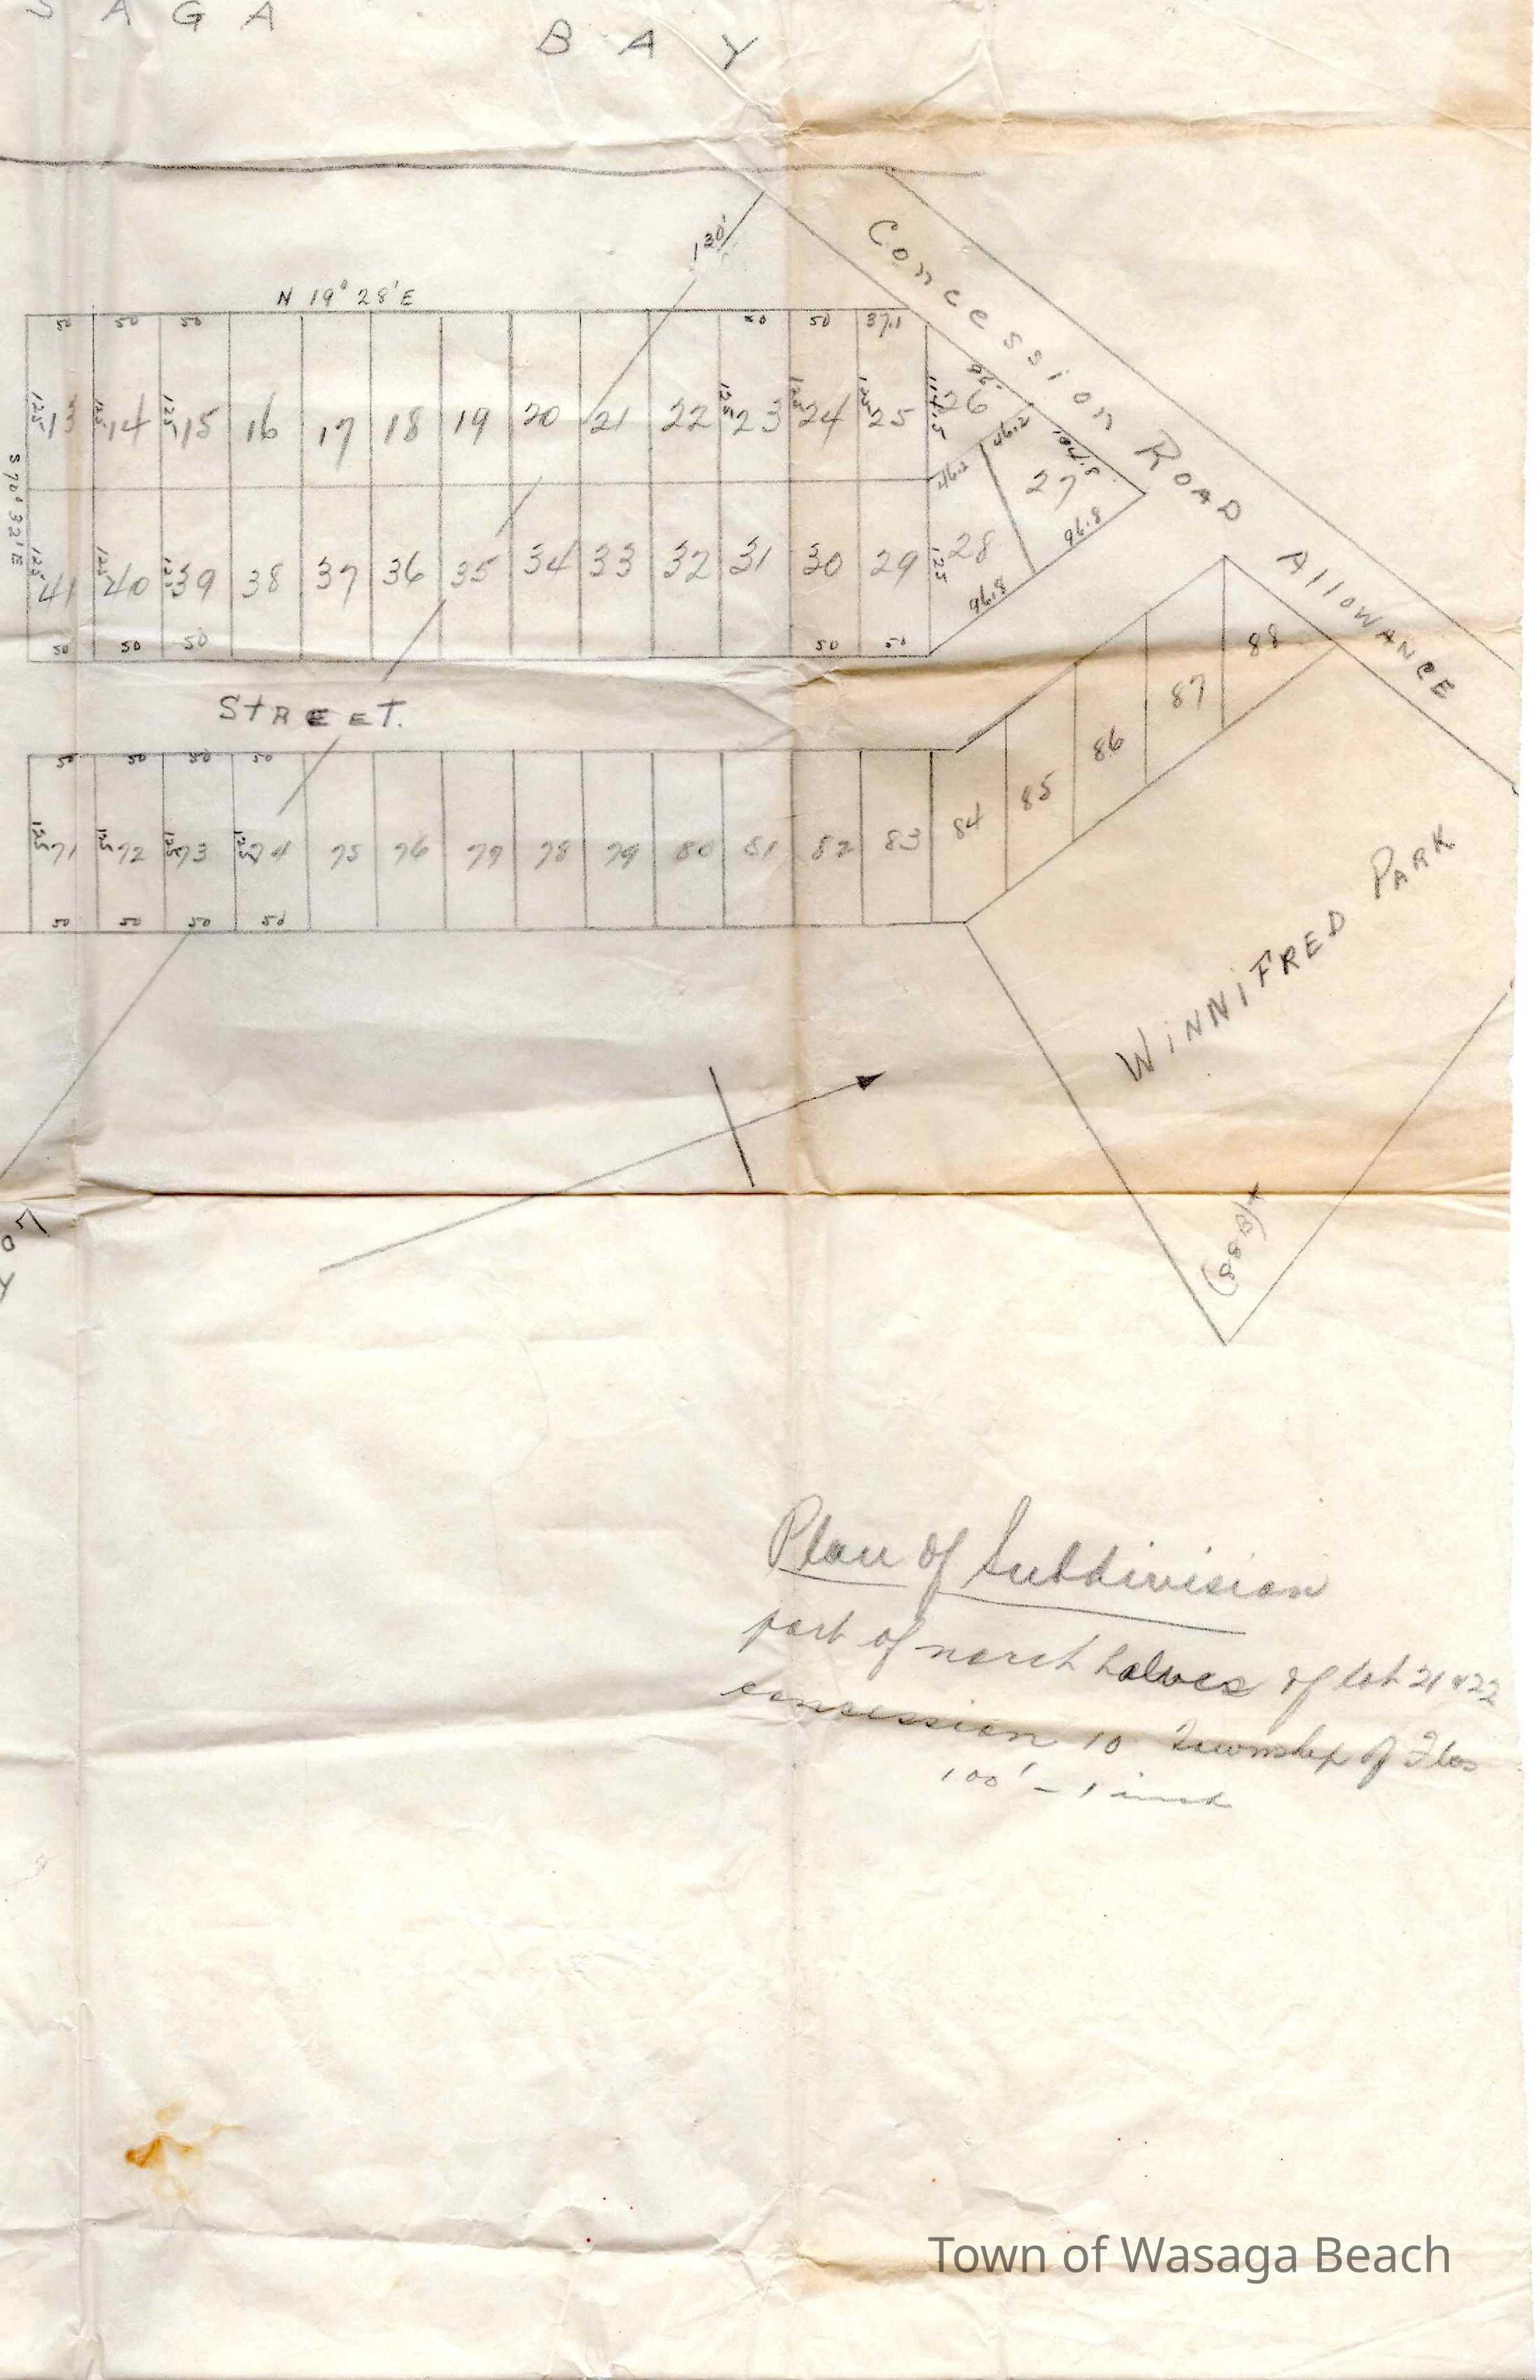 S A G A
B A Y
130'
Concession Road Allowance
N 19° 28' E
50 50 50 50 50 37.1
125 125 125 125 125 125 114.5 96.
13 14 15 16 17 18 19 20 21 22 23 24 25 26
46.2 46.2 104.8
27
96.8
S 70° 32' E
125 125 125 125
41 40 39 38 37 36 35 34 33 32 31 30 29 28
96.8
50 50 50 50 50
STREET.
50 50 50 50
125 125 125 125
71 72 73 74 75 76 77 78 79 80 81 82 83 84 85 86 87 88
50 50 50 50
WINNIFRED PARK
(88B)
Plan of Subdivision
part of north halves of lot 21 & 22
concession 10 Township of Flos
100' - 1 inch
Town of Wasaga Beach